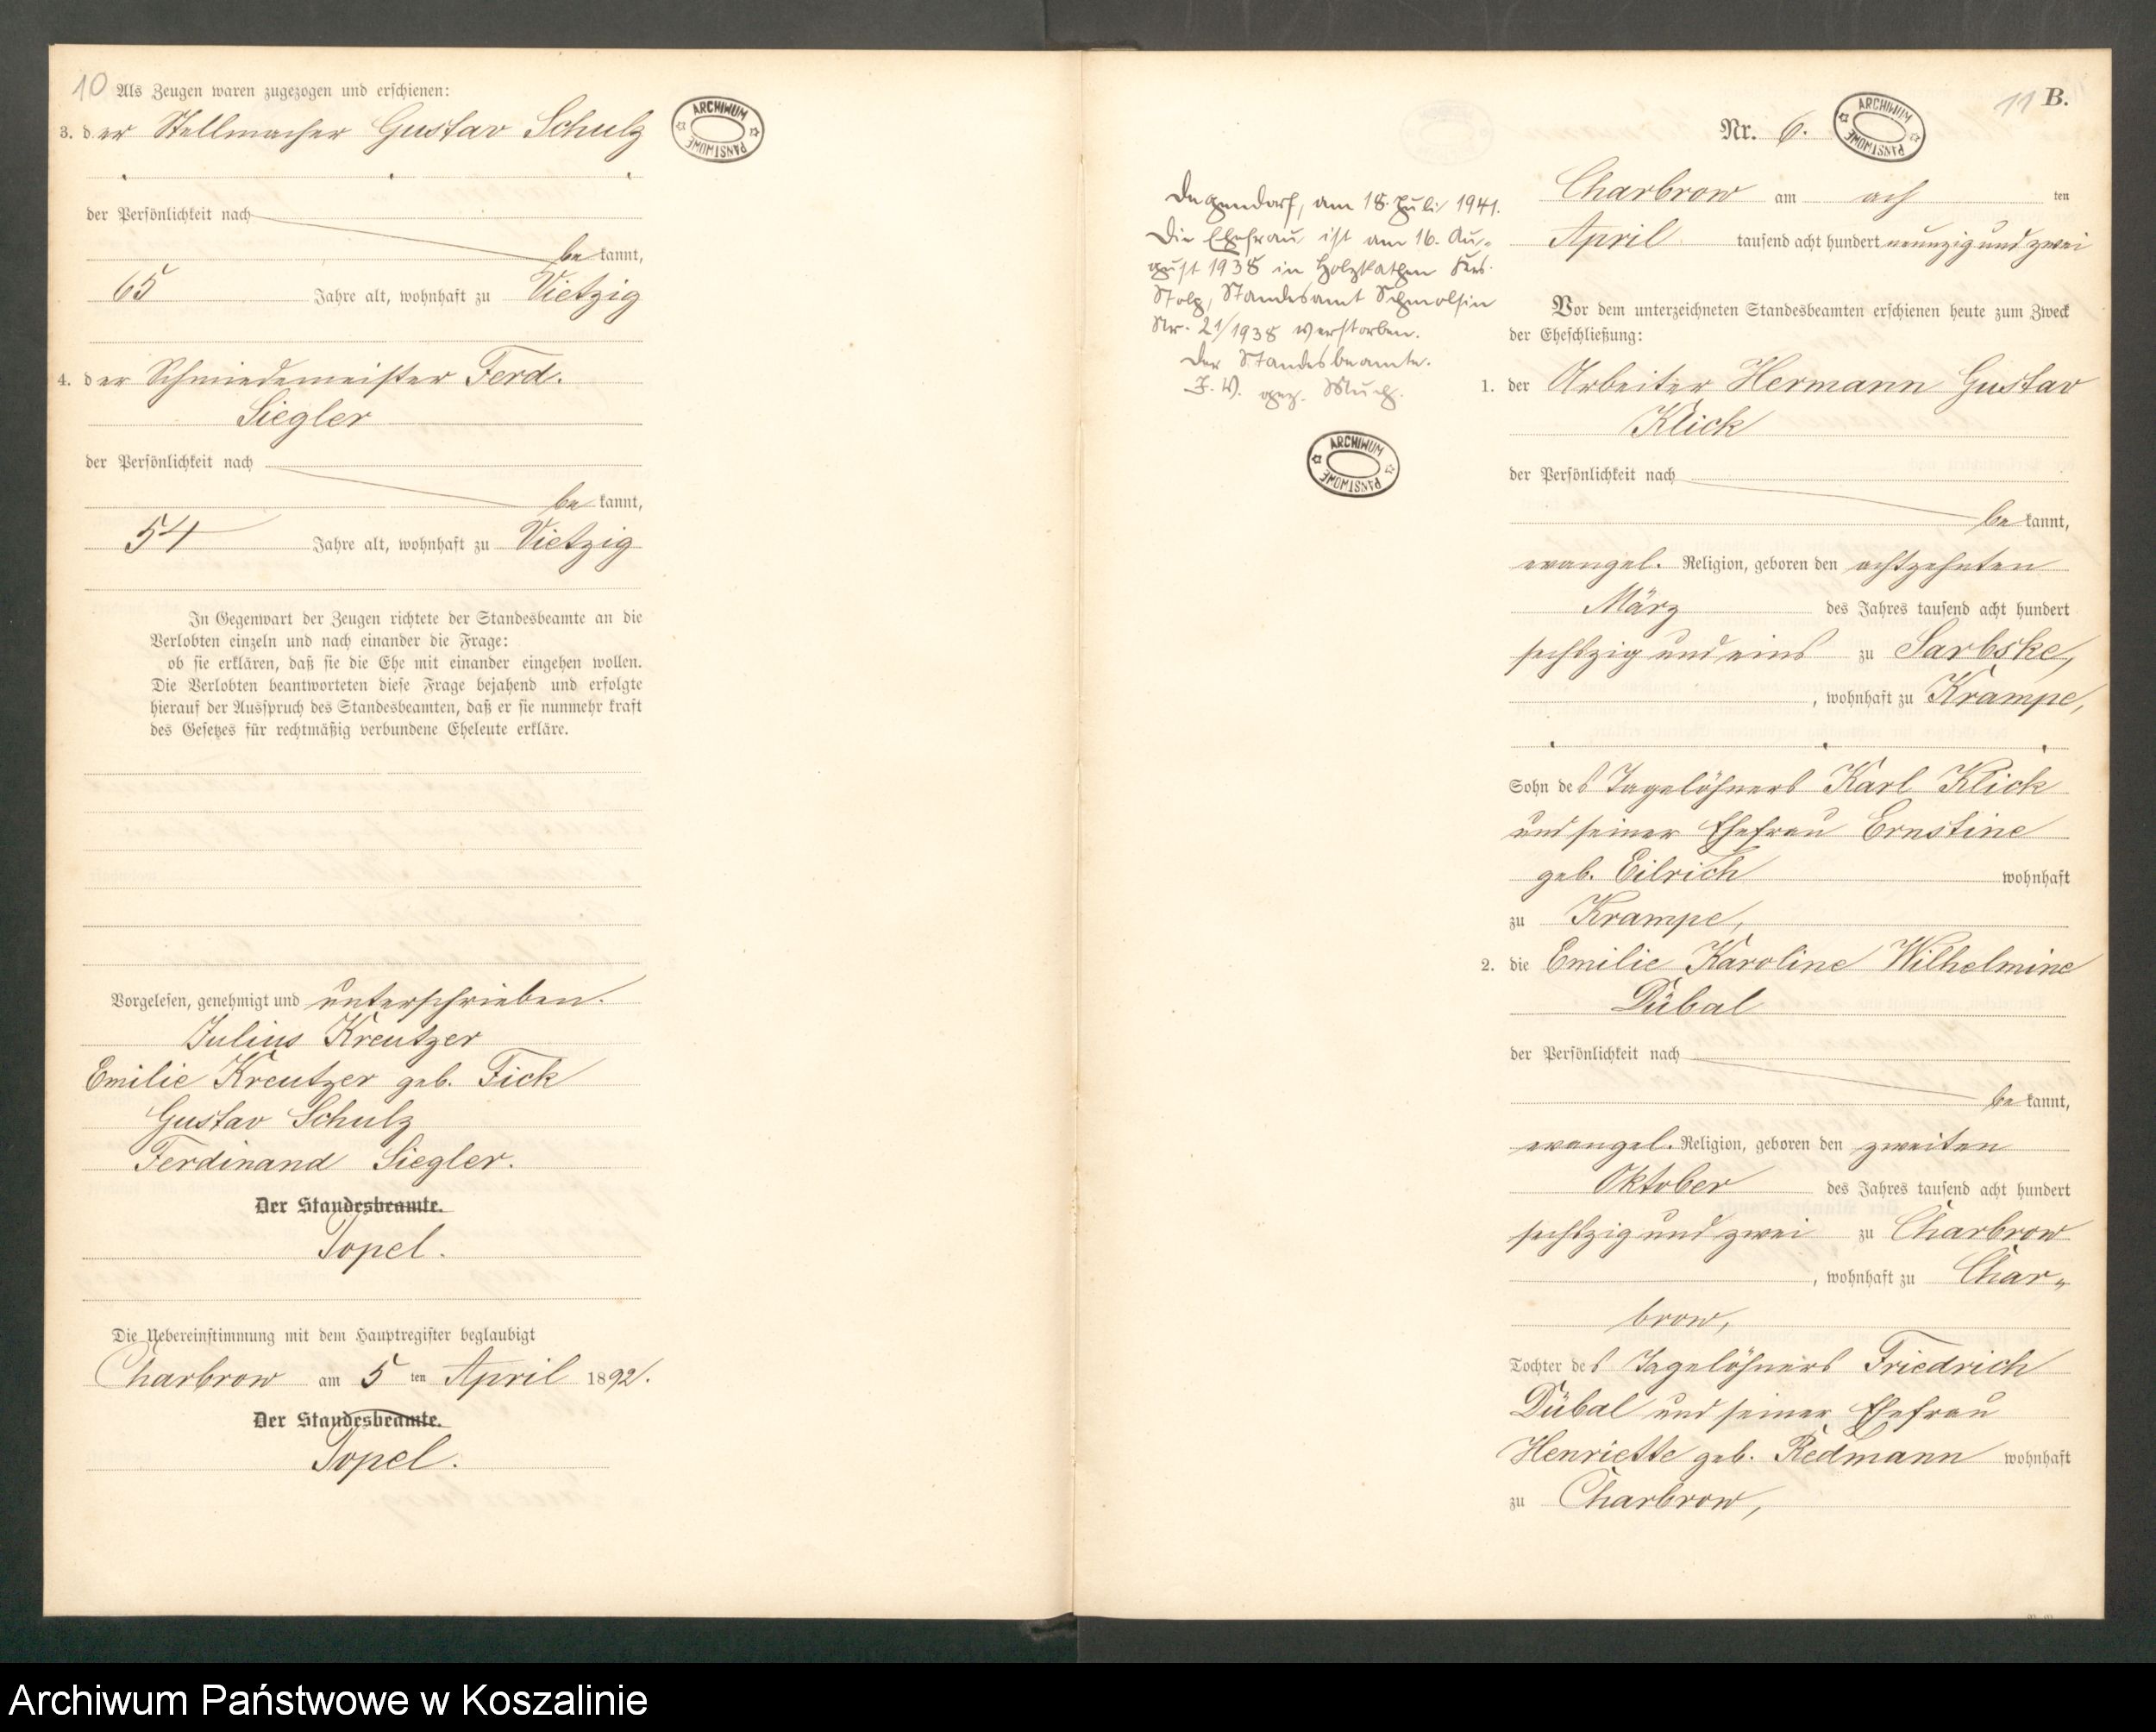 10 Als Zeugen waren zugezogen und erschienen:
3. der Stellmacher Gustav Schulz
der Persönlichkeit nach
bekannt,
65 Jahre alt, wohnhaft zu Vietzig
4. der Schmiedemeister Ferd.
Siegler
der Persönlichkeit nach
bekannt,
54 Jahre alt, wohnhaft zu Vietzig
In Gegenwart der Zeugen richtete der Standesbeamte an die
Verlobten einzeln und nach einander die Frage:
ob sie erklären, daß sie die Ehe mit einander eingehen wollen.
Die Verlobten beantworteten diese Frage bejahend und erfolgte
hierauf der Ausspruch des Standesbeamten, daß er sie nunmehr kraft
des Gesetzes für rechtmäßig verbundene Eheleute erkläre.
Vorgelesen, genehmigt und unterschrieben.
Julius Kreutzer
Emilie Kreutzer geb. Fick
Gustav Schulz
Ferdinand Siegler.
Der Standesbeamte.
Topel.
Die Uebereinstimmung mit dem Hauptregister beglaubigt
Charbrow am 5 ten April 1892.
Der Standesbeamte.
Topel.
ARCHIWUM PAŃSTWOWE
11 B.
Nr. 6.
ARCHIWUM PAŃSTWOWE
Degendorf, am 18. Juli 1941.
Die Ehefrau ist am 16. Au-
gust 1938 in Holzkathen Krs.
Stolp, Standesamt Schmolsin
Nr. 21/1938 verstorben.
Der Standesbeamte.
I. V. gez.
ARCHIWUM PAŃSTWOWE
Charbrow am ach ten
April tausend acht hundert neunzig und zwei
Vor dem unterzeichneten Standesbeamten erschienen heute zum Zweck
der Eheschließung:
1. der Arbeiter Hermann Gustav
Klick
der Persönlichkeit nach
bekannt,
evangel. Religion, geboren den achtzehnten
März des Jahres tausend acht hundert
sechszig und eins zu Sarbske,
, wohnhaft zu Krampe,
Sohn des Tagelöhners Karl Klick
und seiner Ehefrau Ernstine
geb. Eilrich wohnhaft
zu Krampe,
2. die Emilie Karoline Wilhelmine
Dübal
der Persönlichkeit nach
bekannt,
evangel. Religion, geboren den zweiten
Oktober des Jahres tausend acht hundert
sechszig und zwei zu Charbrow
, wohnhaft zu Char-
brow,
Tochter des Tagelöhners Friedrich
Dübal und seiner Ehefrau
Henriette geb. Redmann wohnhaft
zu Charbrow,
Archiwum Państwowe w Koszalinie